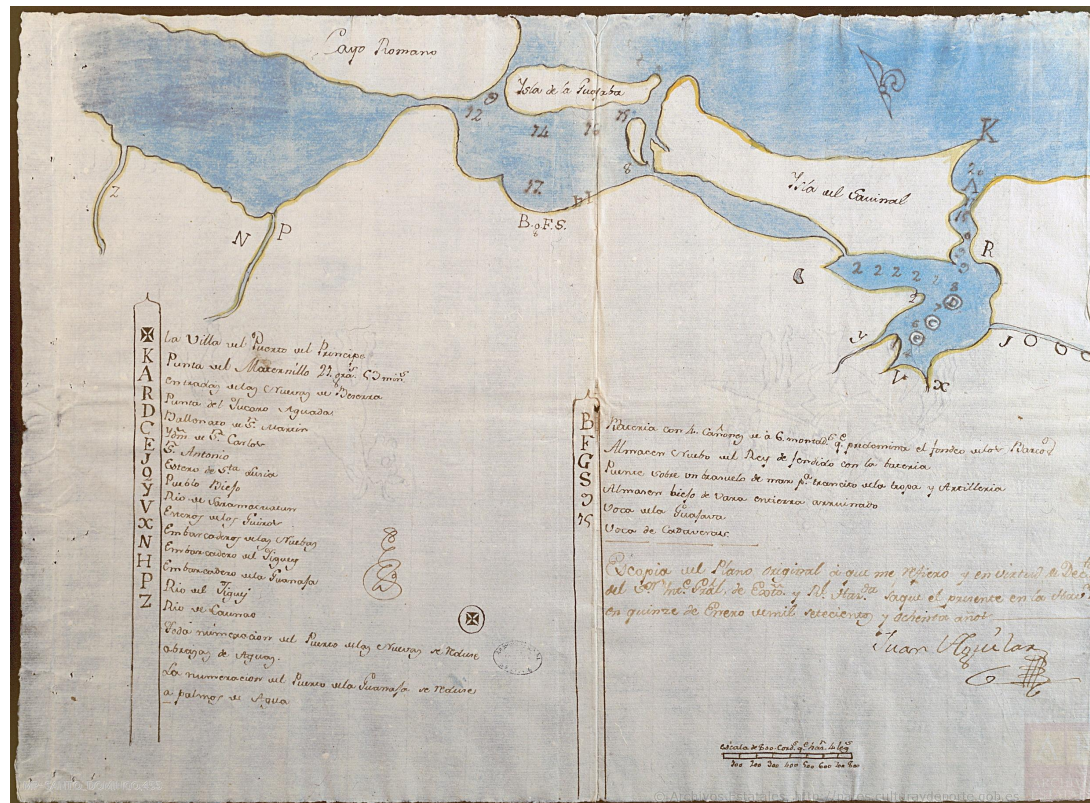 Cayo Romano
Isla de la Guajaba
Isla del Savinal
K
12
14
16
15
8
17
B. G. F. S.
N
P
Z
2 2 2 2 2
R
D
C
E
J O O O
Y
V
X
K
A
R
D
C
E
J
O
Y
V
X
N
H
P
Z
La Villa del Puerto del Principe
Punta del Maternillo 22 grs. 53 mins.
entradas de las Nuevas de Becerra
Punta del Jucaro Aguada
Ballonato de Sn. Martin
Ydm. de Sn. Carlos
Sn. Antonio
Estero de Sta. Lusia
Pueblo Biejo
Rio de Saramaguacan
Esteros de los Guiros
Embarcaderos de las Nuebas
Embarcadero del Jiguey
Embarcadero de la Guanaja
Rio del Jiguey
Rio de Caunao
Toda numeracion del Puerto de las Nuevas se reduse
abrazas de Aguas.
La numeracion del Puerto de la Guanaja se reduse
a palmos de Agua
B
F
G
S
Bateria con 4. Cañones de á 6. montads. qe. predomina el fondeo de los Barcos
Almacen Nuebo del Rey defendido con la bateria
Puente sobre un brasuelo de mar pa. transito de la tropa y Artilleria
Almacen biejo de Vara entierra arruinado
Voca de la Guajava
Voca de Cadaverais
Es copia del Plano original á que me refiero y en virtud de
del Yntte. Gral. de Exto. y Rl. Hazda. saque el presente en la
en quinze de Enero de mil setecientos y ochenta años
Juan Aguilar
escala de 800. Cords. qe. hazn. 4 legs.
© Archivos Estatales, http://pares.culturaydeporte.gob.es